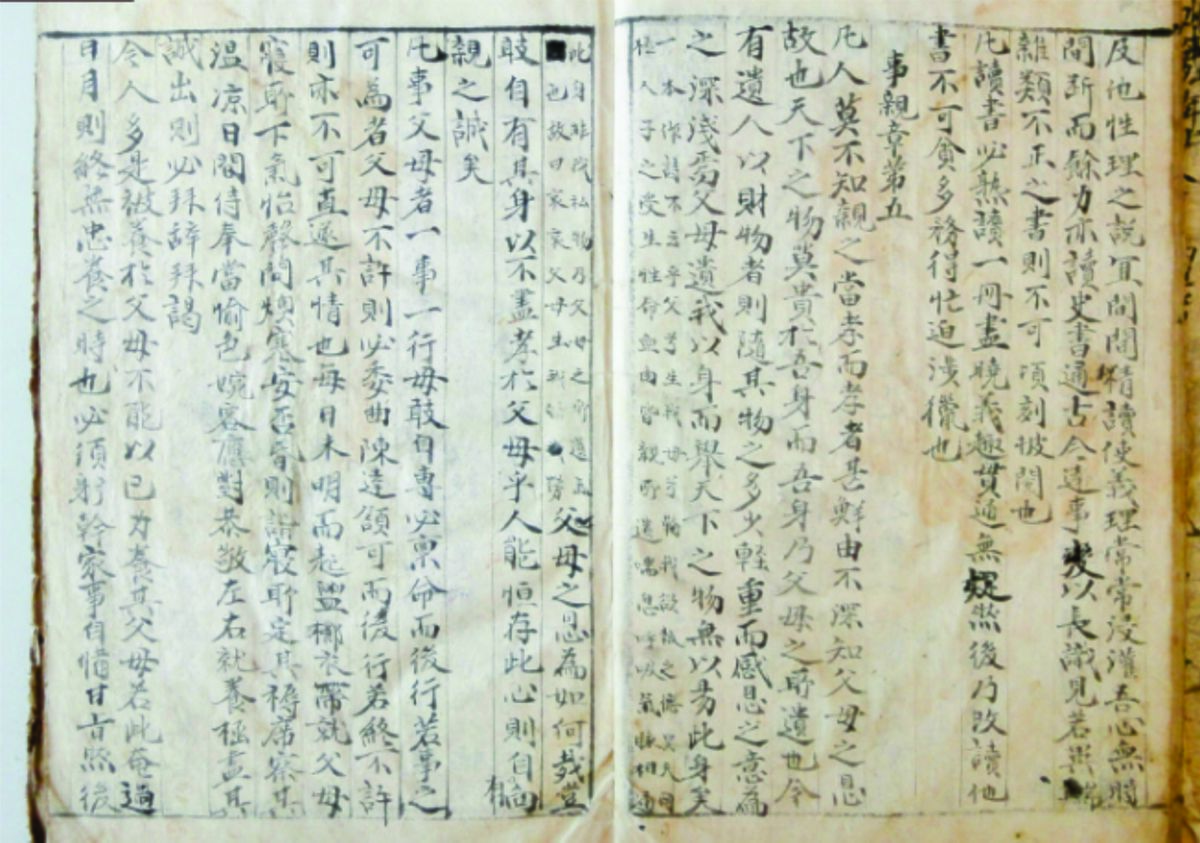 及他性理之說宜間間精讀使義理常常浸灌吾心無時
間斷而餘力亦讀史書通古今達事變以長識見若異端
雜類不正之書則不可頃刻披閱也
凡讀書必熟讀一冊盡曉義趣貫通無疑然後乃改讀他
書不可貪多務得忙迫涉獵也
事親章第五
凡人莫不知親之當孝而孝者甚鮮由不深知父母之恩
故也天下之物莫貴於吾身而吾身乃父母之所遺也今
有遺人以財物者則隨其物之多少輕重而感恩之意為
之深淺焉父母遺我以身而舉天下之物無以易此身矣
一本作詩不云乎父兮生我母兮鞠我欲報之德昊天罔
極人子之受生性命血肉皆親所遺喘息呼吸氣脉相通
此身非我私物乃父母之所遺
也故曰哀哀父母生我劬勞
父母之恩為如何哉豈
敢自有其身以不盡孝於父母乎人能恒存此心則自有向
親之誠矣
凡事父母者一事一行毋敢自專必稟命而後行若事之
可為者父母不許則必委曲陳達頷可而後行若終不許
則亦不可直遂其情也每日未明而起盥櫛衣帶就父母
寢所下氣怡聲問燠寒安否昏則詣寢所定其褥席察其
溫凉日間侍奉當愉色婉容應對恭敬左右就養極盡其
誠出則必拜辭拜謁
今人多是被養於父母不能以己力養其父母若此奄過
日月則終無忠養之時也必須躬幹家事自備甘旨然後